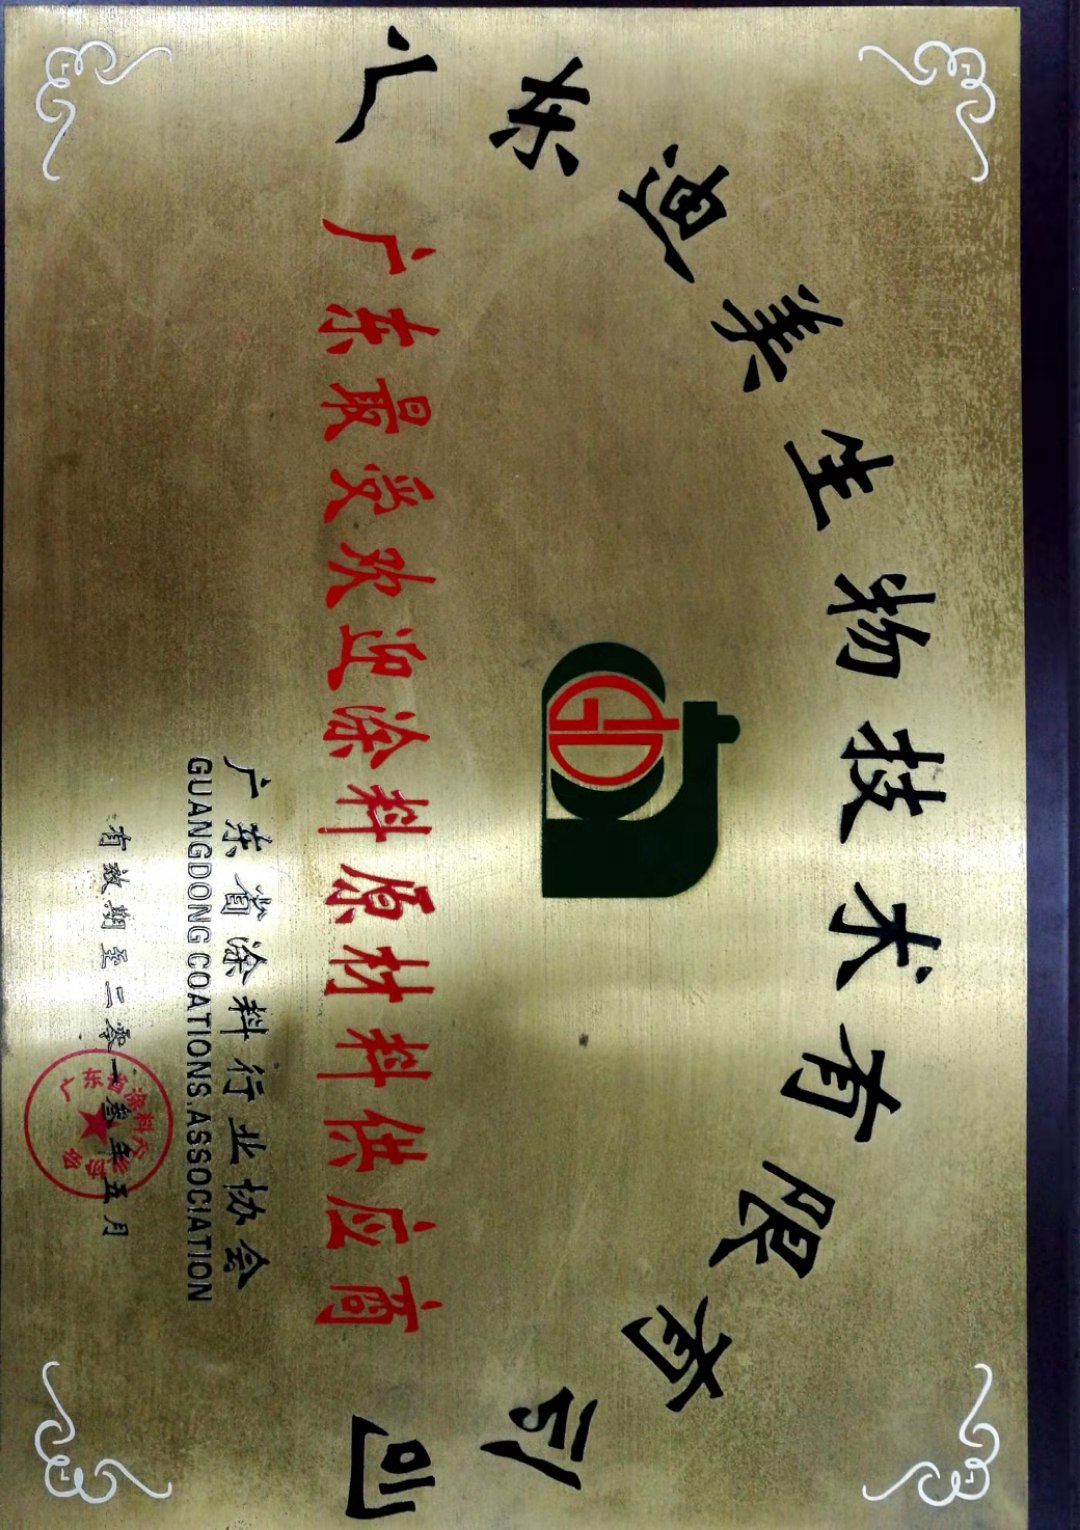 广东迪美生物技术有限司
广东最受欢迎涂料原材料供应商
广东省涂料行业协会
GUANGDONG COATIONS.ASSOCIATION
有效期至二零一叁年五月
广东省涂料